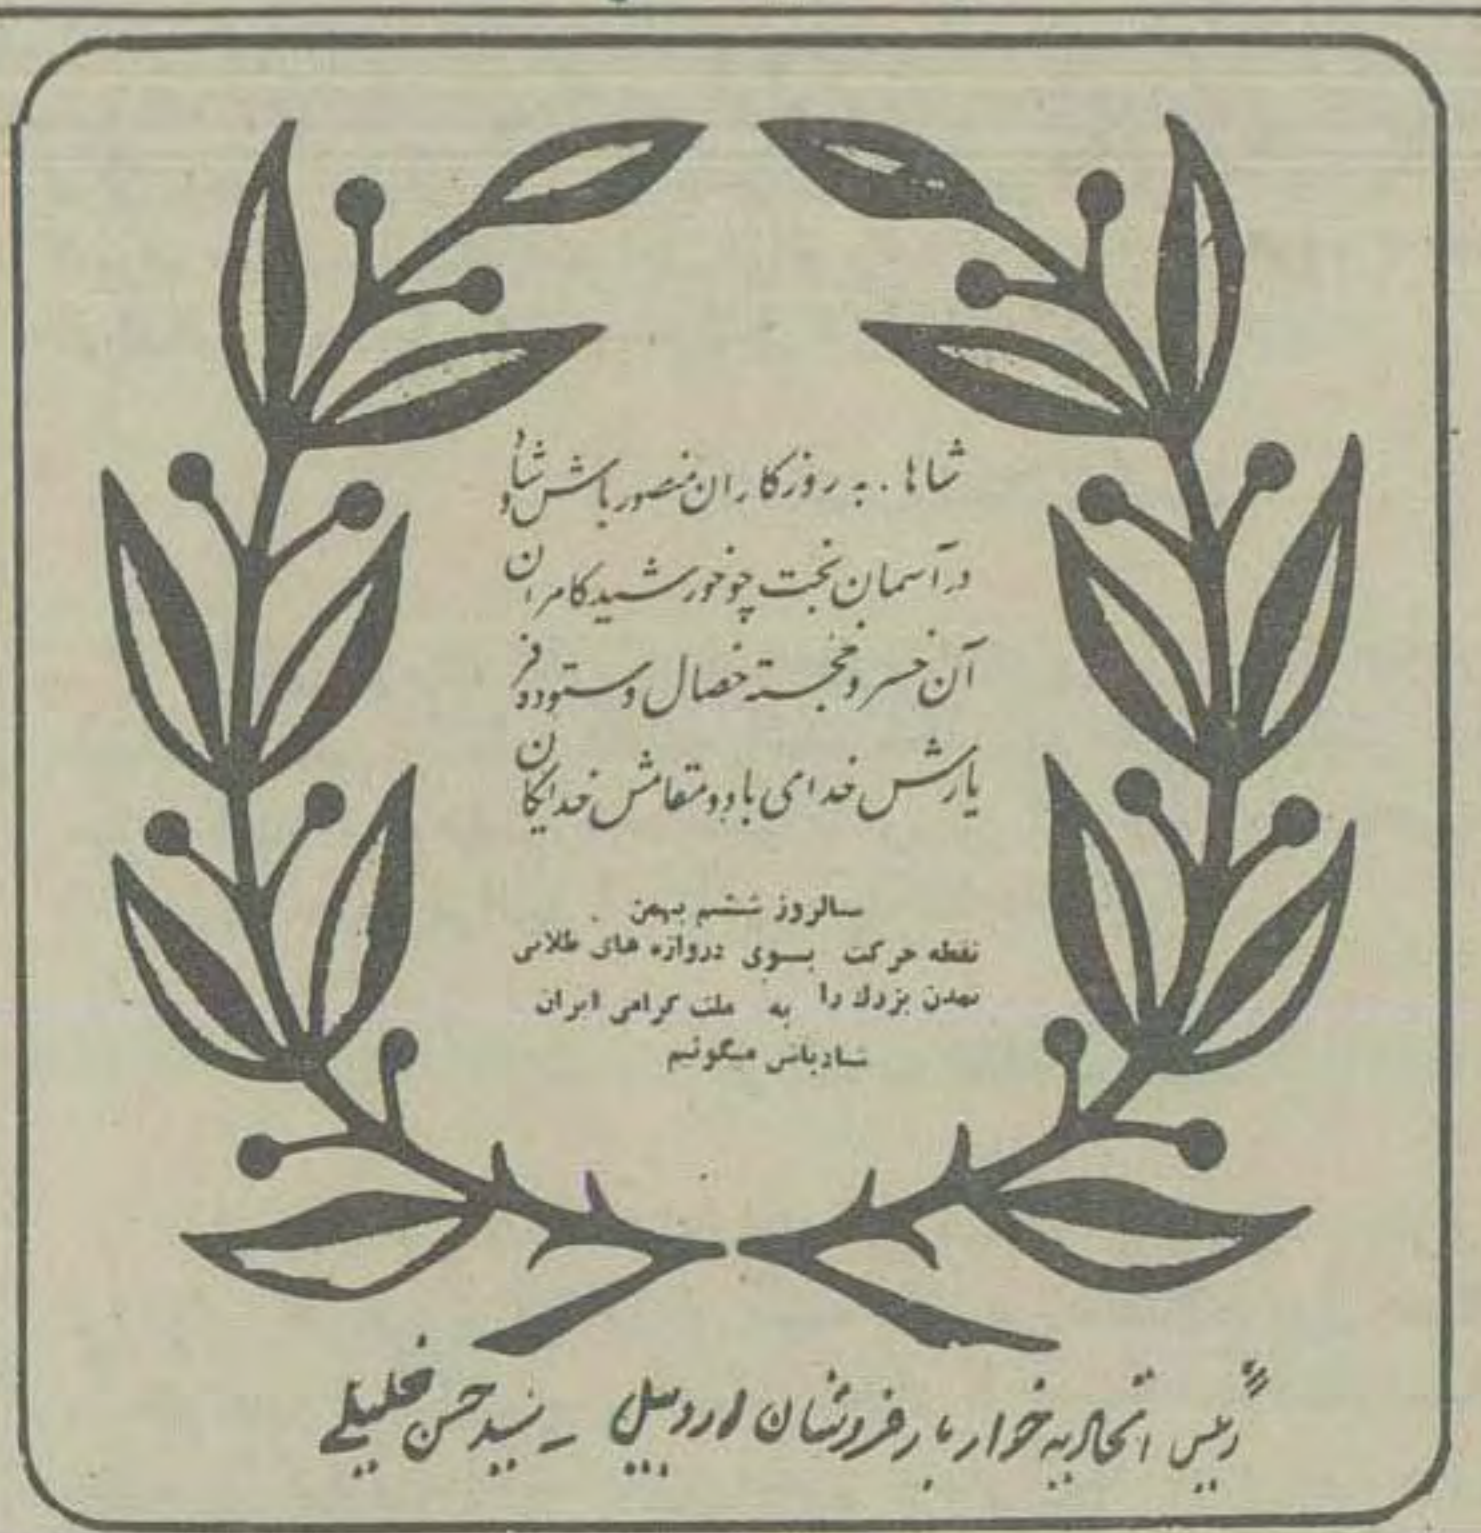 شاها . به روزگاران منصور باش و شاد
در آسمان بخت چو خورشید کامران
آن خسرو خجسته خصال و ستوده فر
یارش خدای باد و مقامش خدایگان
سالروز ششم بهمن
نقطه حرکت بسوی دروازه های طلائی
تمدن بزرگ را به ملت گرامی ایران
شادباش میگوئیم
رئیس اتحادیه خواربار فروشان اردبیل - سید حسن خلیلی